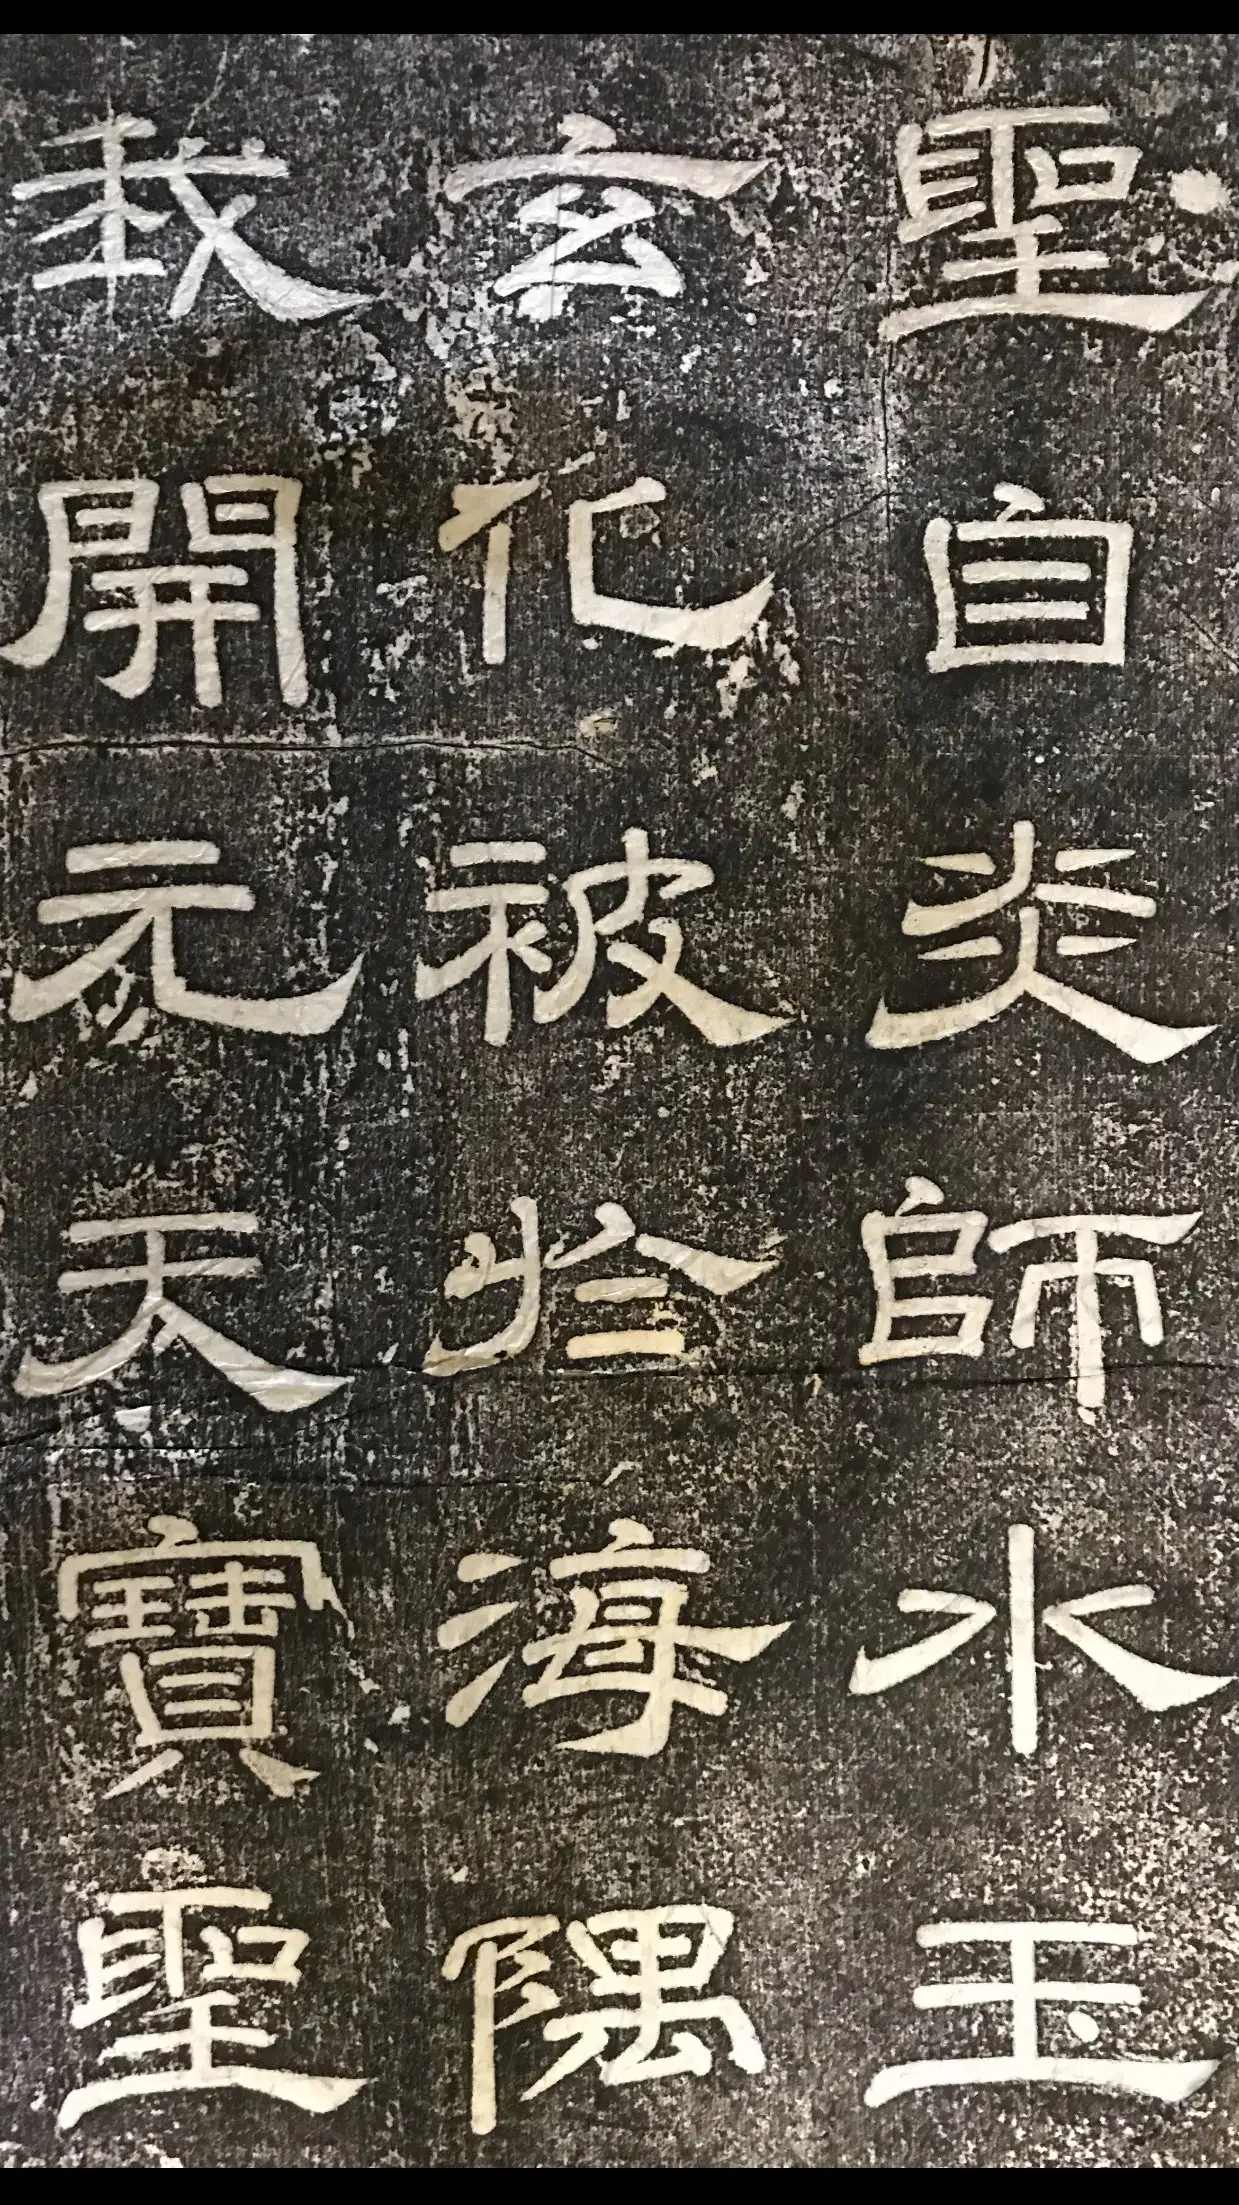 聖自炎師水玉
玄化被於海隅
我開元天寶聖